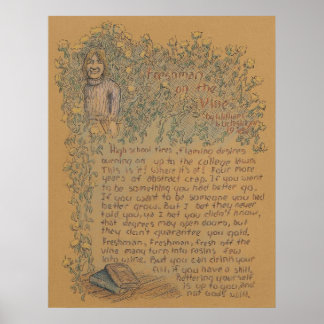 Freshman
on the
Vine
High school fires, flaming desires
burning on up to the college level.
This is it! Where it's at! Four more
years of abstract crap. If you want
to be something you had better go.
If you want to be someone you had
better grow. But I bet they never
told you, ya I bet you didn't know,
that degrees may open doors, but
they don't guarantee you gold.
Freshman, freshman, fresh off the
vine many turn into raisins few
into wine. But you can drink your
fill, if you have a skill,
bettering yourself
is up to you and
not Gods will.